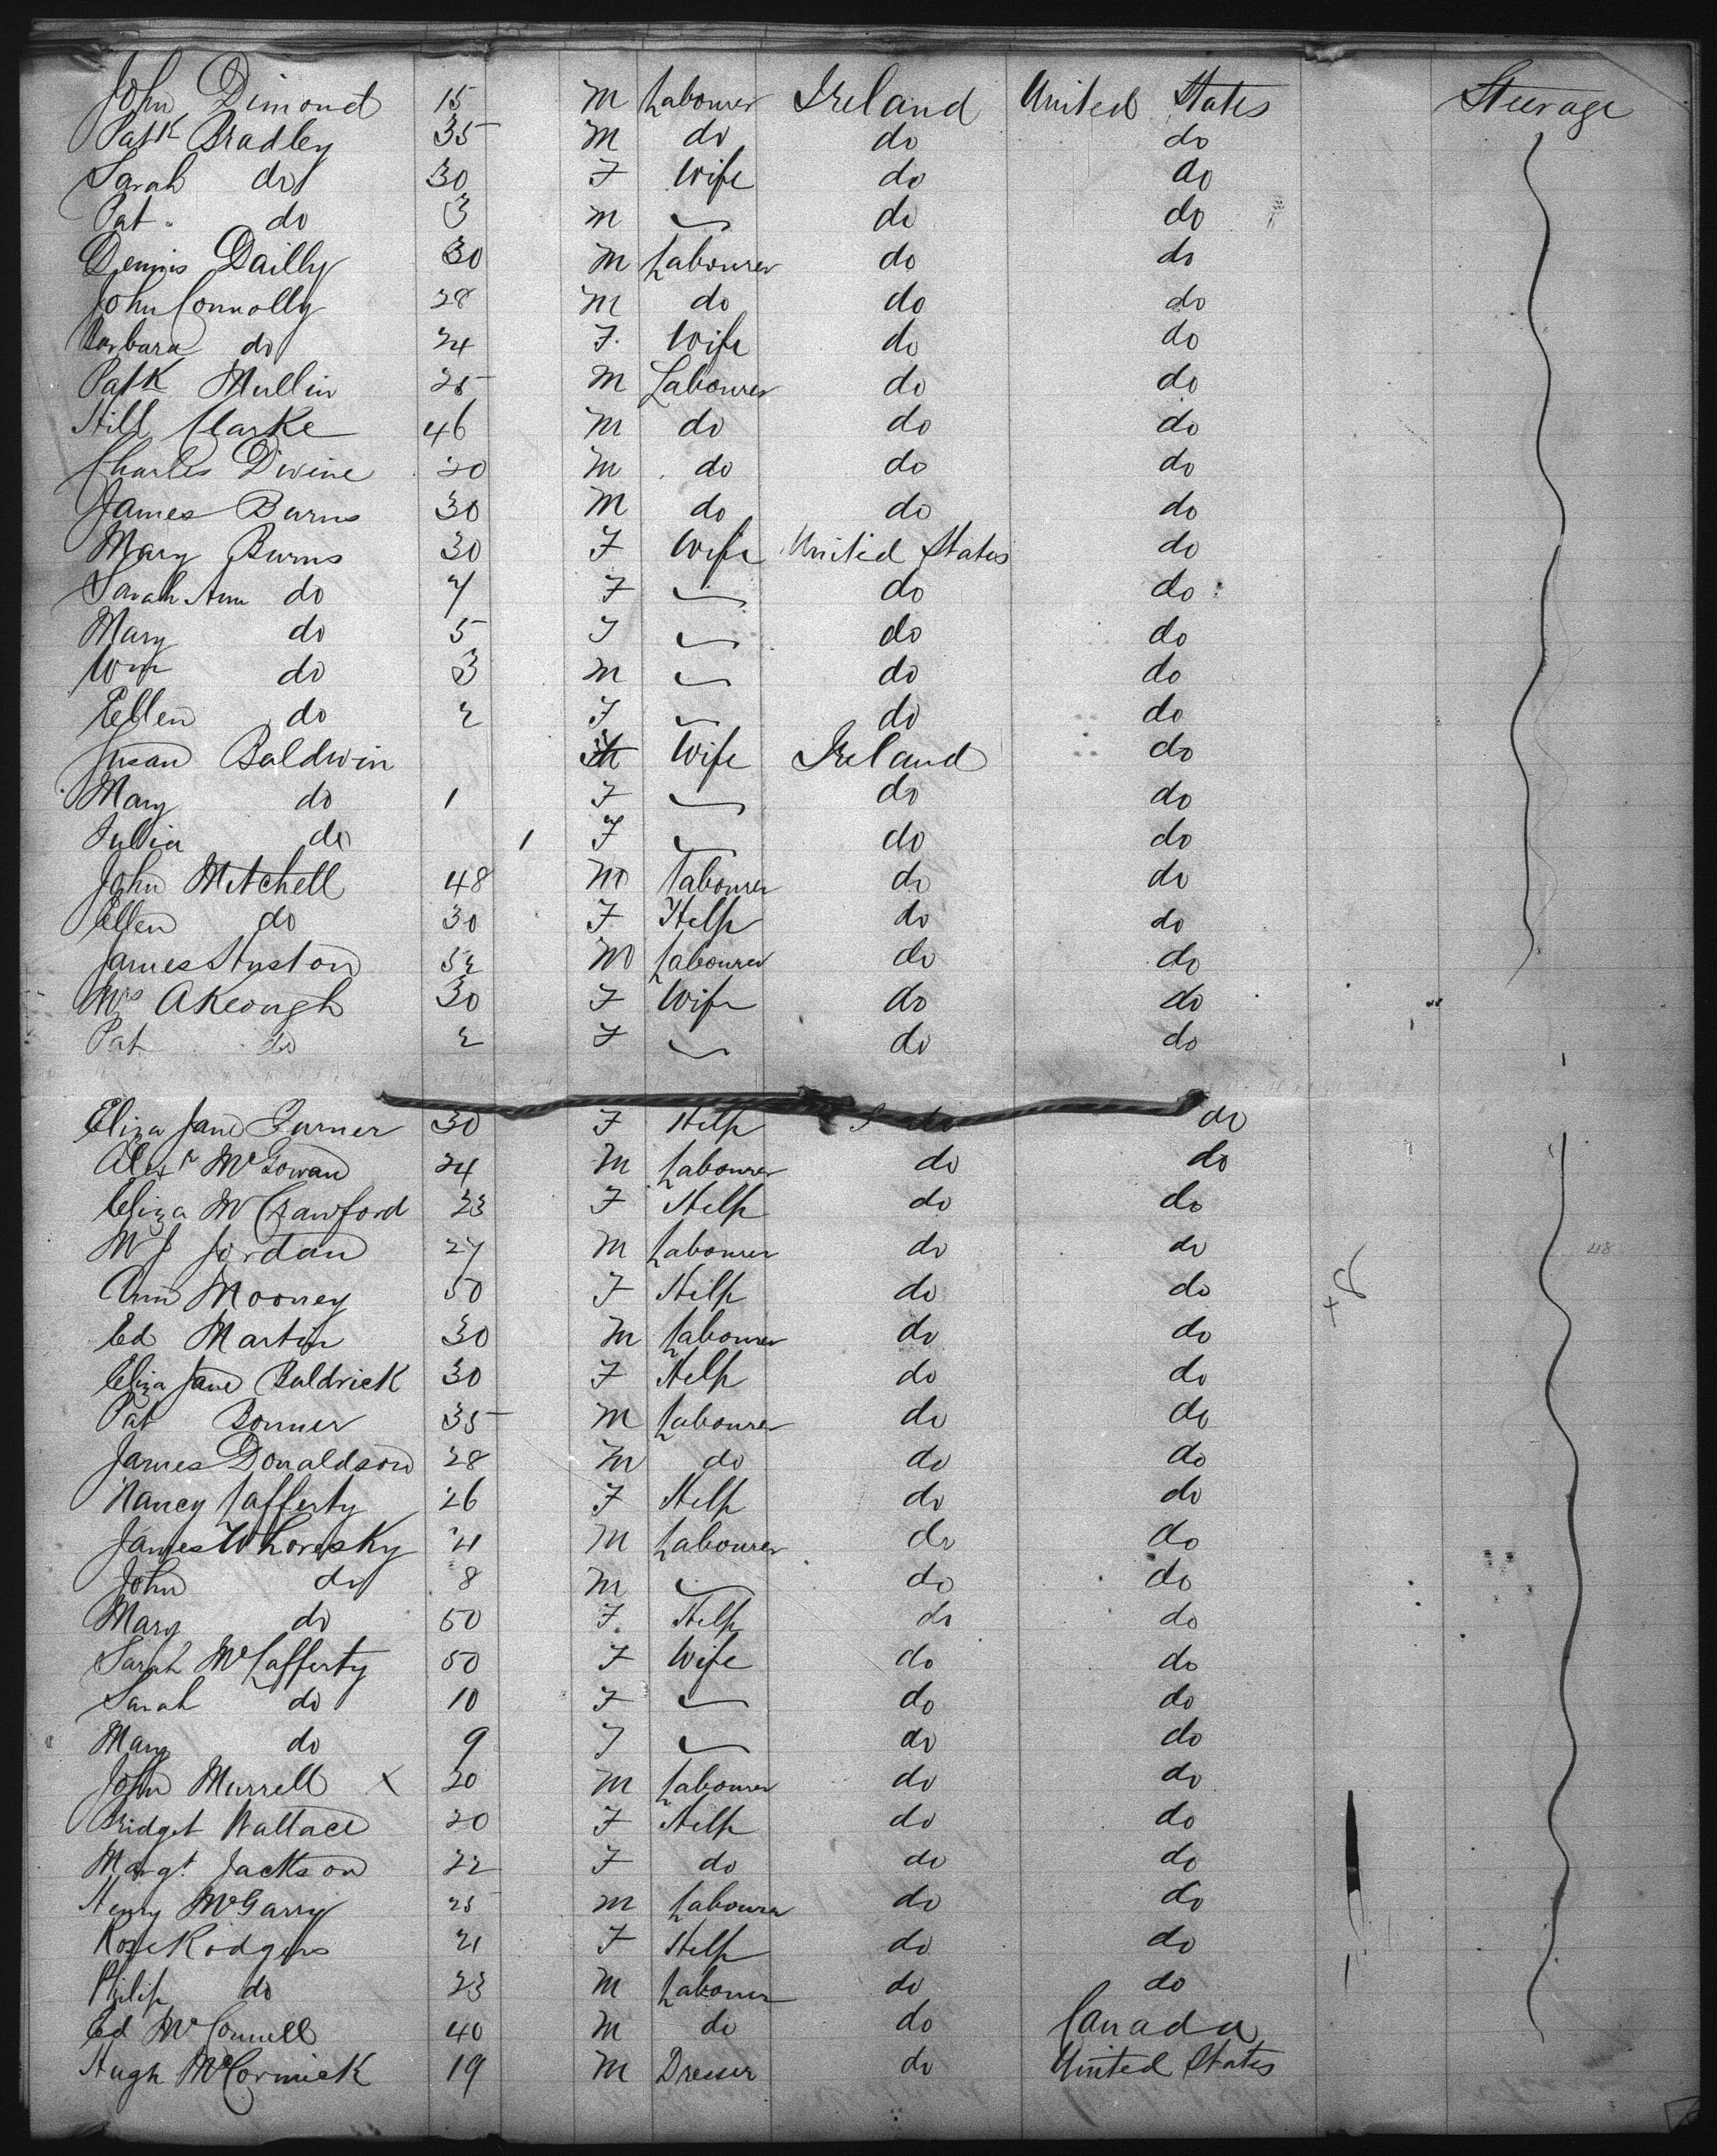 John Dimond 15 M Labourer Ireland United States Steerage
Patk Bradley 35 M do do do
Sarah do 30 F Wife do do
Pat do 3 M do do
Dennis Dailly 30 M Labourer do do
John Connolly 28 M do do do
Barbara do 24 F. Wife do do
Patk Mullin 25 M Labourer do do
Hill Clarke 46 M do do do
Charles Divine 20 M do do do
James Burns 30 M do do do
Mary Burns 30 F Wife United States do
Sarah Ann do 7 F do do
Mary do 5 F do do
Wm do 3 M do do
Ellen do 2 F do do
Susan Baldwin Wife Ireland do
Mary do 1 F do do
Julia do 1 F do do
John Mitchell 48 M Labourer do do
Ellen do 30 F Help do do
James Huston 52 M Labourer do do
Mrs A Keough 30 F Wife do do
Pat do 2 F do do
Eliza Jane Turner 30 F Help do do
Alexr McGowan 24 M Labourer do do
Eliza M Crawford 23 F Help do do
W J Jordan 27 M Labourer do do 48
Ann Mooney 50 F Help do do
Ed Martin 30 M Labourer do do
Eliza Jane Baldrick 30 F Help do do
Pat Bonner 35 M Labourer do do
James Donaldson 28 M do do do
Nancy Lafferty 26 F Help do do
James Whoresky M Labourer do do
John do 8 M do do
Mary do 50 F. Help do do
Sarah McCafferty 50 F Wife do do
Sarah do 10 F do do
Mary do 9 F do do
John Murrell X 20 M Labourer do do
Bridget Wallace 20 F Help do do
Margt. Jackson 22 F do do do
Henry McGarry 25 M Labourer do do
Rose Rodgers 21 F Help do do
Philip do 23 M Labourer do do
Ed McConnell 40 M do do Canada
Hugh McCormick 19 M Dresser do United States